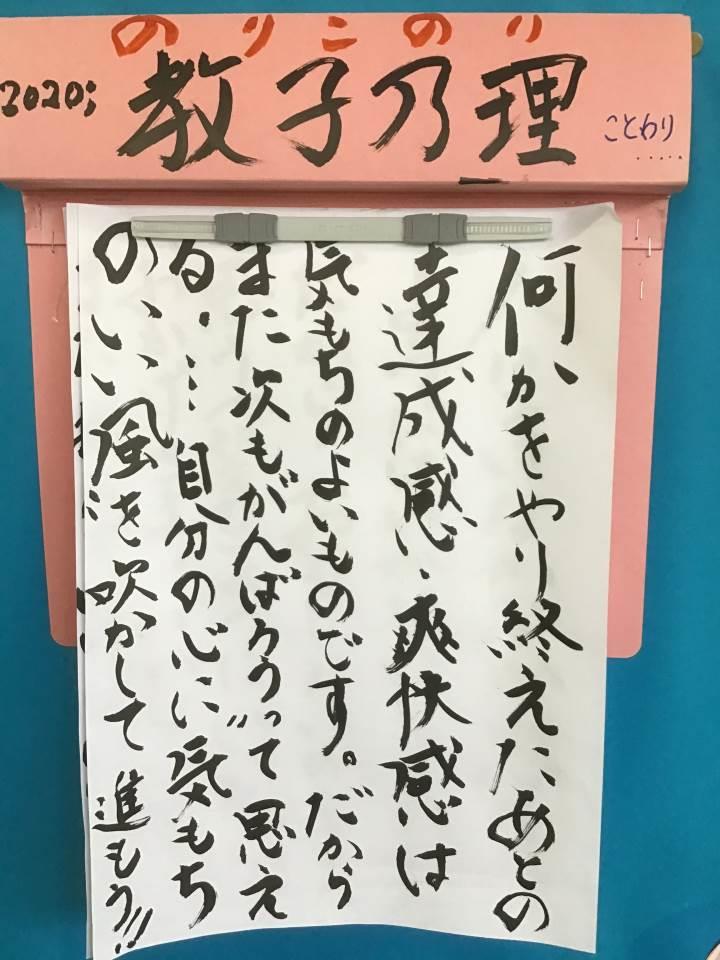 のりこのり
2020;
教子乃理
ことわり
.....
何かをやり終えたあとの
達成感、爽快感は
気もちのよいものです。だから
また次もがんばろうって思え
る....自分の心に気もち
のいい風を吹かして進もう!!